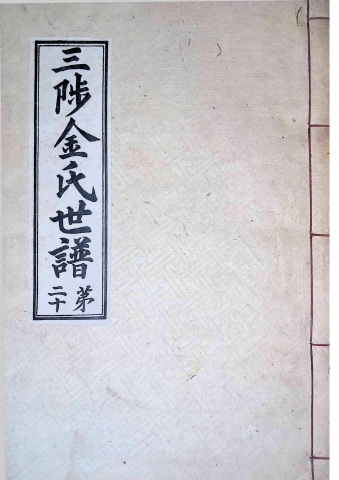 三陟金氏世譜
苐二十